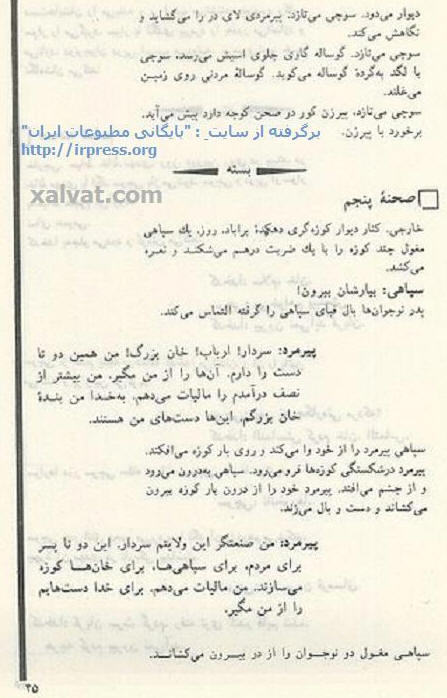 دیوار می‌دود. سوجی می‌تازد. پیرمردی لای در را می‌گشاید و
نگاهش می‌کند.
سوجی می‌تازد. گوساله گاری جلوی اسبش می‌رسد. سوجی
با لگد به‌گردهٔ گوساله می‌کوبد. گوسالهٔ مردنی روی زمین
می‌غلتد.
سوجی می‌تازد. پیرزن کور در صحن کوچه دارد پیش می‌آید.
برخورد با پیرزن.
برگرفته از سایت : "بایگانی مطبوعات ایران"
http://irpress.org
بسته
xalvat.com
صحنهٔ پنجم
خارجی. کنار دیوار کوزه‌گری دهکدهٔ براباد. روز. یك سپاهی
مغول چند کوزه را با یك ضربت درهم می‌شکند و نعره
می‌کشد.
سپاهی: بیارشان بیرون!
پدر نوجوان‌ها بال قبای سپاهی را گرفته التماس می‌کند.
پیرمرد: سردار! ارباب! خان بزرگ! من همین دو تا
دست را دارم. آن‌ها را از من مگیر. من بیشتر از
نصف درآمدم را مالیات می‌دهم. به‌خدا من بندهٔ
خان بزرگم. این‌ها دست‌های من هستند.
سپاهی پیرمرد را از خود وا می‌کند و روی بار کوزه می‌افکند.
پیرمرد درشکستگی کوزه‌ها فرو می‌رود. سپاهی به‌درون می‌رود
و از چشم می‌افتد. پیرمرد خود را از درون بار کوزه بیرون
می‌کشاند و دست و بال می‌زند.
پیرمرد: من صنعتگر این ولایتم سردار. این دو تا پسر
برای مردم، برای سپاهی‌ها، برای خان‌ها کوزه
می‌سازند. من مالیات می‌دهم. برای خدا دست‌هایم
را از من مگیر.
سپاهی مغول دو نوجوان را از در بیرون می‌کشاند.
۳۵